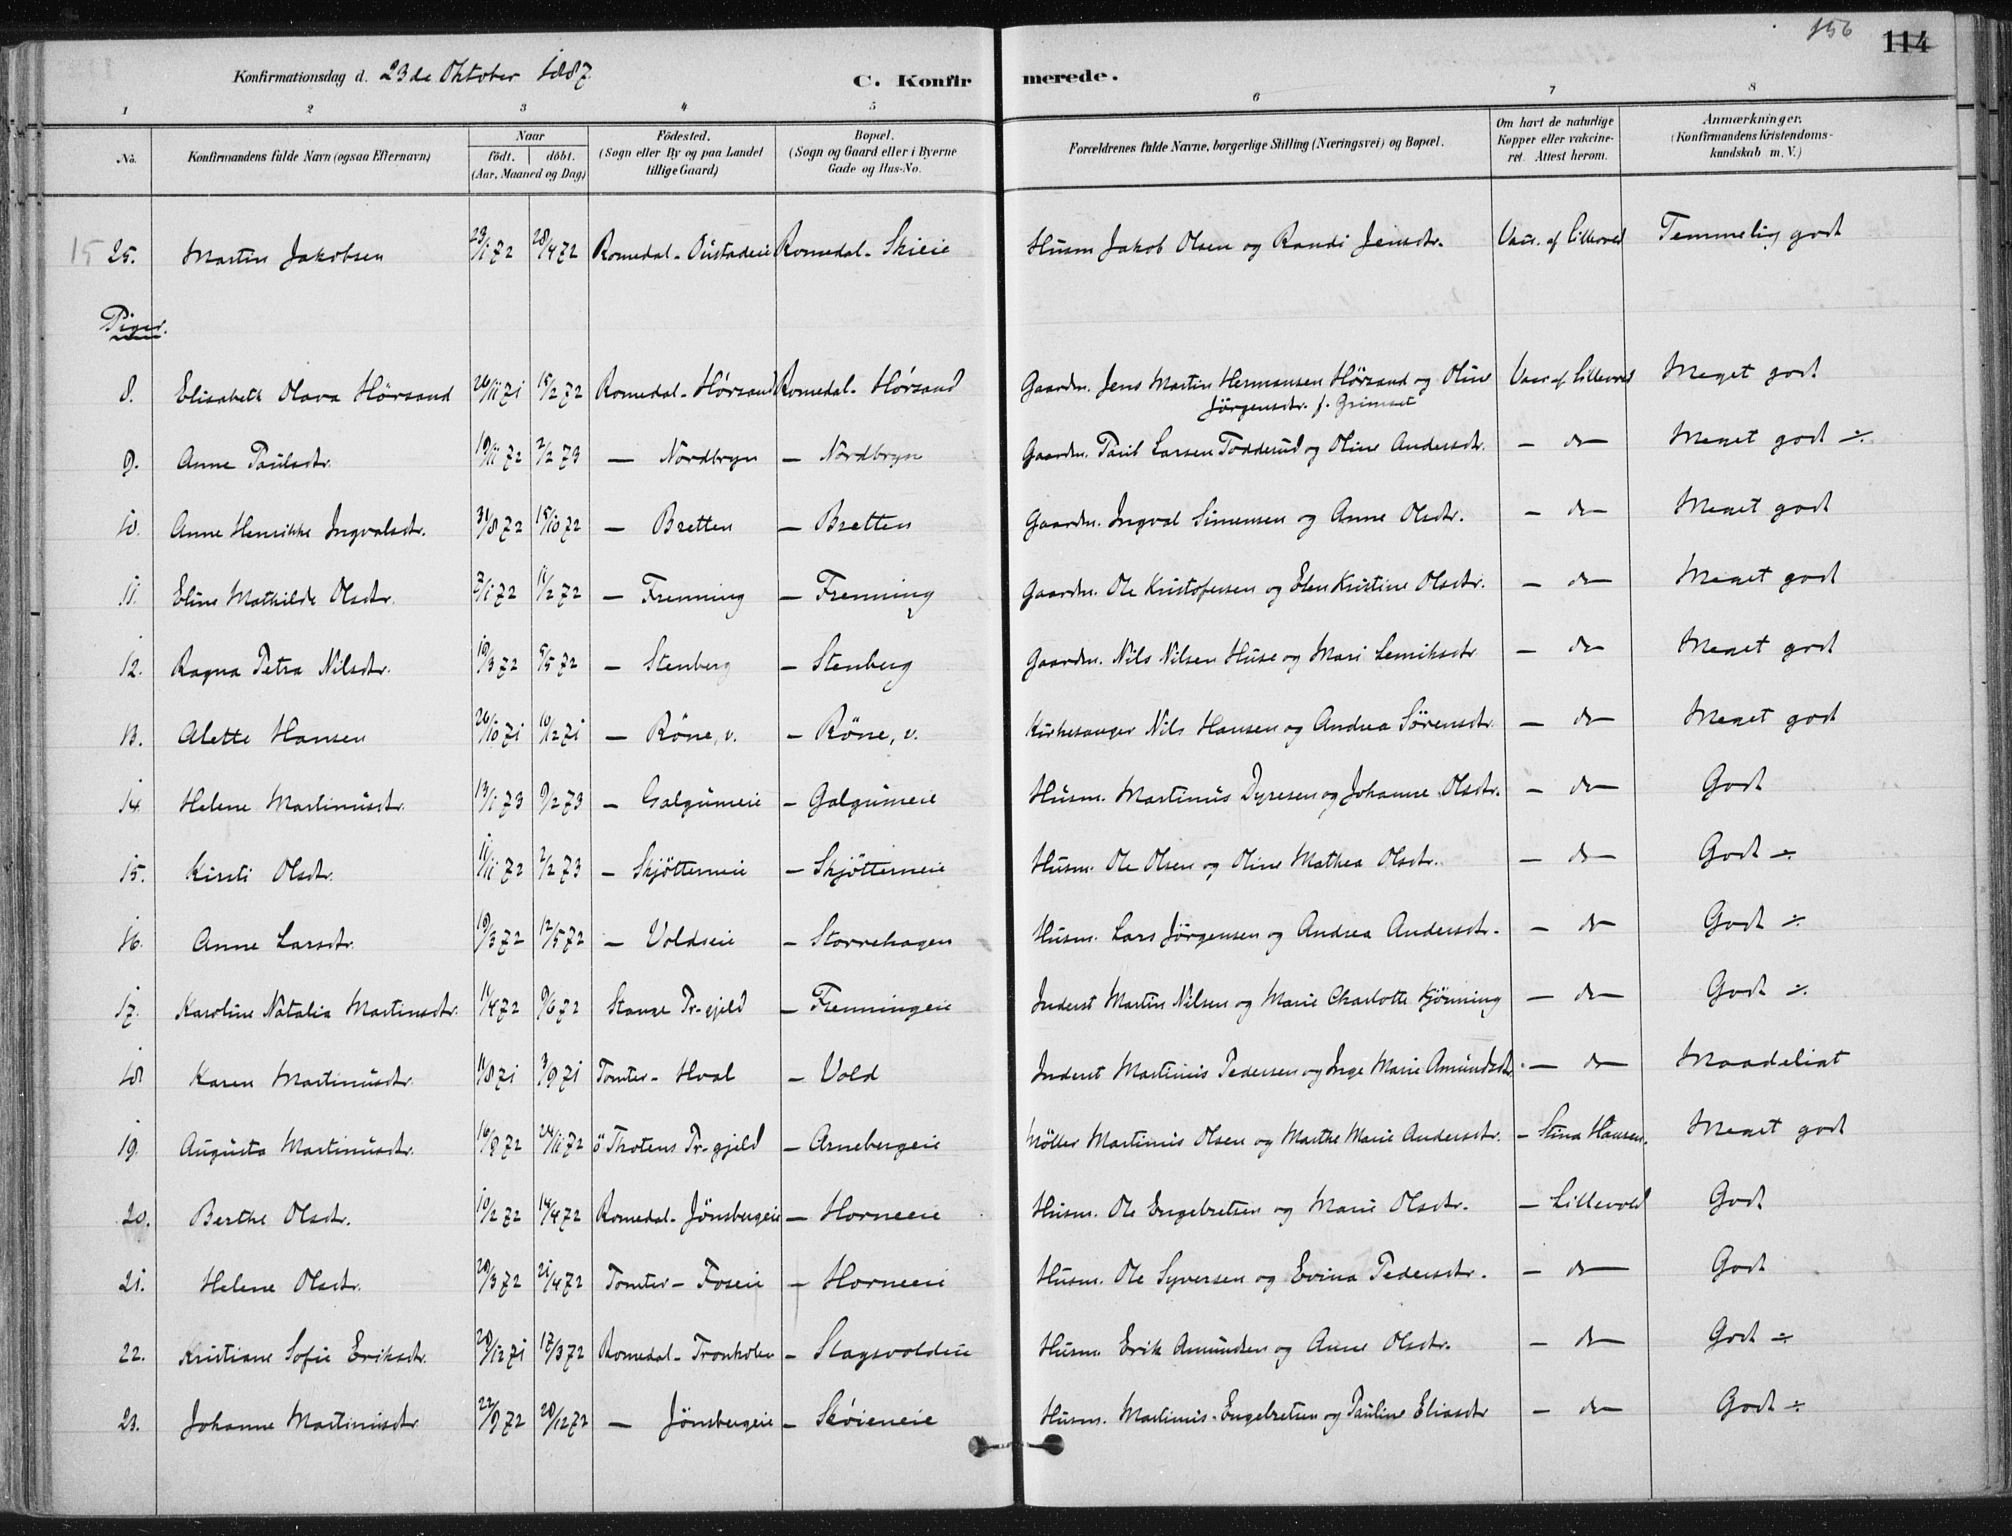 156 114
Konfirmationsdag d. 23de Oktober 1887 C. Konfirmerede.
1 2 3 4 5 6 7 8
No. Konfirmandens fulde Navn (ogsaa Efternavn) Naar födt. döbt. (Aar, Maaned og Dag) Födested. (Sogn eller By og paa Landet tillige Gaard) Bopæl. (Sogn og Gaard eller i Byerne Gade og Hus-No. Forældrenes fulde Navne, borgerlige Stilling (Næringsvei) og Bopæl. Om havt de naturlige Kopper eller vakcineret. Attest herom. Anmærkninger. (Konfirmandens Kristendomskundskab m. V.)
15 25. Martin Jakobsen 23/1 72 28/4 72 Romedal - Oustadeie Romedal - Skieie Husm Jakob Olsen og Randi Jensdtr. Vacc. af Lillevold Temmelig godt
Piger.
8. Elisabeth Olava Hörsand 26/11 71 18/2 72 Romedal - Hörsand Romedal - Hörsand Gaardm. Jens Martin Hermansen Hörsand og Oline Vacc. af Lillevold Meget godt
Jörgensdtr. f. Grimset
9. Anne Paulsdtr. 19/11 72 2/2 73 — Nordbryn — Nordbryn Gaardm. Paul Larsen Todderud og Oline Andersdtr. — do — Meget godt ÷
10. Anne Henrikke Ingvalsdtr. 31/8 72 15/10 72 — Bretten — Bretten Gaardm. Ingval Simensen og Anne Olsdtr. — do — Meget godt
11. Eline Mathilde Olsdtr. 7/1 72 11/2 72 — Frenning — Frenning Gaardm. Ole Kristofersen og Elen Kristine Olsdtr. — do — Meget godt
12. Ragna Petra Nilsdtr. 10/3 72 5/5 72 — Stenberg — Stenberg Gaardm. Nils Nilsen Huse og Mari Lemiksdtr — do — Meget godt
13. Alette Hansen 26/10 71 10/12 71 — Röne, v. — Röne, v. Kirkesanger Nils Hansen og Andrea Sörensdtr. — do — Meget godt
14. Helene Martinusdtr. 13/1 73 9/2 73 — Galgumeie — Galgumeie Husm. Martinus Dyresen og Johanne Olsdtr. — do — Godt
15. Kirsti Olsdtr. 11/11 72 2/2 73 — Skjötterneie — Skjötterneie Husm. Ole Olsen og Oline Mathea Olsdtr. — do — Godt ÷
16. Anne Larsdtr. 19/3 72 12/5 72 — Voldseie — Storrehagen Husm. Lars Jörgensen og Andrea Andersdtr. — do — Godt ÷
17. Karoline Natalia Martinsdtr. 11/4 72 9/6 72 Stange Pr-gjeld — Frenningeie Inderst Martin Nilsen og Marie Charlotte Kjönning — do — Godt ÷
18. Karen Martinusdtr. 11/8 71 3/9 71 Tomter - Hval — Vold Inderst Martinus Pedersen og Inge Marie Amundsdtr. — do — Maadeligt
19. Augusta Martinusdtr. 16/8 72 24/11 72 ö Thotens Pr-gjeld — Arnebergeie Möller Martinus Olsen og Marthe Marie Andersdtr. — Stina Hansen. Meget godt
20. Berthe Olsdtr. 10/2 72 14/4 72 Romedal - Jönsbergeie — Horneeie Husm. Ole Engebretsen og Marie Olsdtr. — Lillevold Godt
21. Helene Olsdtr. 20/3 72 21/4 72 Tomter - Foseie — Horneeie Husm. Ole Syversen og Evina Pedersdtr. — do — Godt
22. Kristiane Sofie Eriksdtr. 28/12 71 17/3 72 Romedal - Tronholen — Slagsvoldeie Husm. Erik Amundsen og Anne Olsdtr. — do — Godt ÷
23. Johanne Martinusdtr 22/9 72 20/12 72 — Jönsbergeie — Sköieneie Husm. Martinus Engebretsen og Pauline Eliasdtr — do — Godt ÷